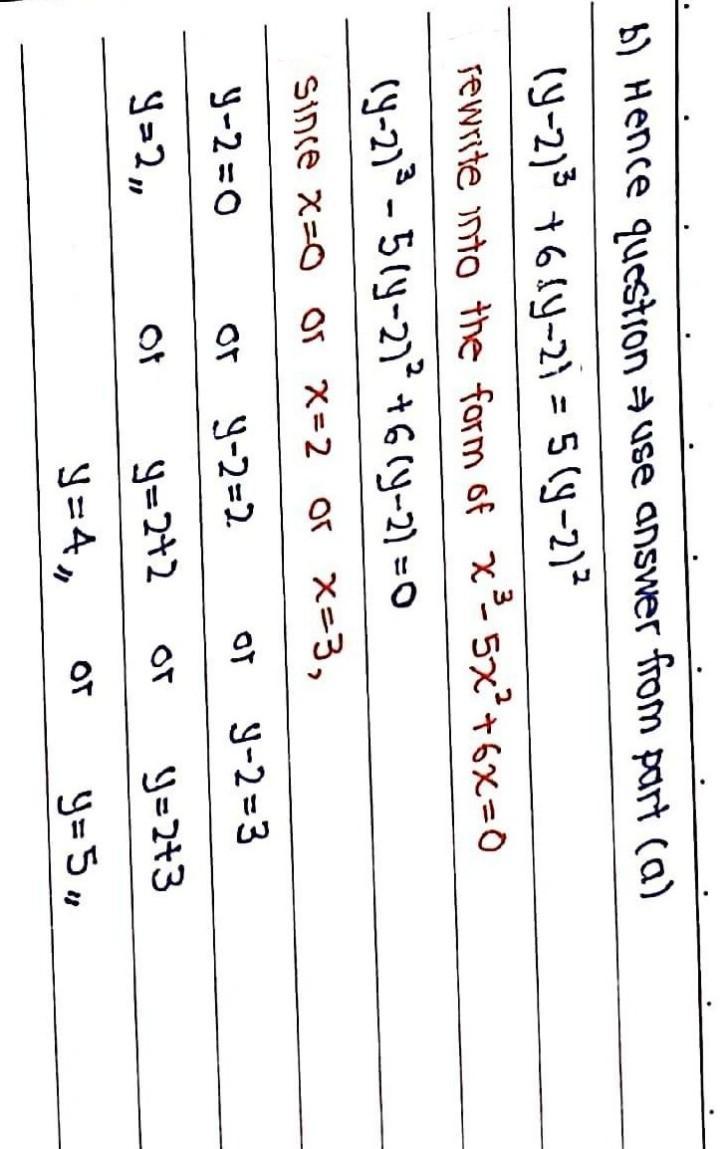 b) Hence question ⇒ use answer from part (a)
(y-2)³ + 6(y-2) = 5(y-2)²
rewrite into the form of x³ - 5x² + 6x = 0
(y-2)³ - 5(y-2)² + 6(y-2) = 0
since x=0 or x=2 or x=3,
y-2=0 or y-2=2 or y-2=3
y=2,, or y=2+2 or y=2+3
y=4,, or y=5,,